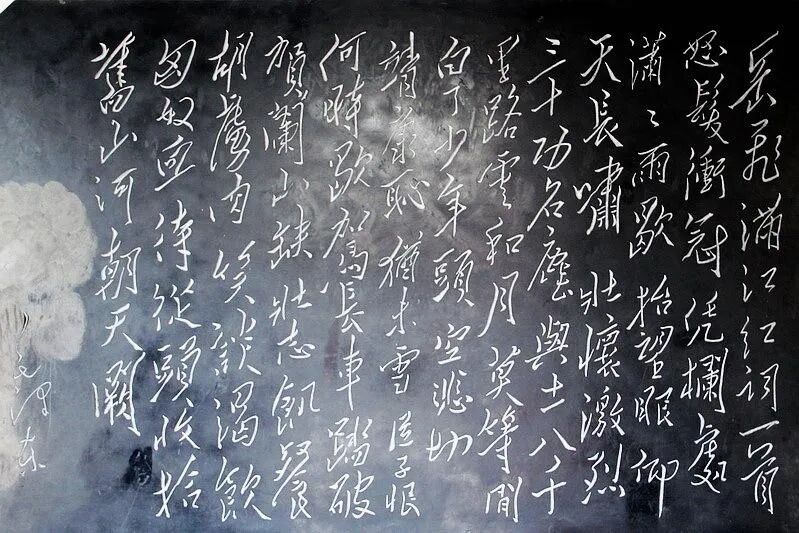 岳飛滿江紅詞一首
怒髮衝冠凭欄處
瀟々雨歇抬望眼仰
天長嘯壯懷激烈
三十功名塵與土八千
里路雲和月莫等閒
白了少年頭空悲切
靖康恥猶未雪臣子恨
何時歇駕長車踏破
賀蘭山缺壯志飢餐
胡虜肉笑談渴飲
匈奴血待從頭收拾
舊山河朝天闕
毛澤东